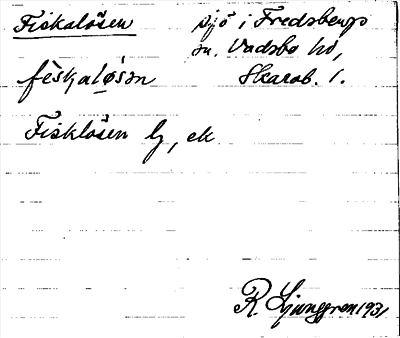 Fiskalösen sjö i Fredsbergs
sn. Vadsbo hd,
fèskaløsən Skarab. l.
Fisklösen lg, ek
R. Ljunggren 1931